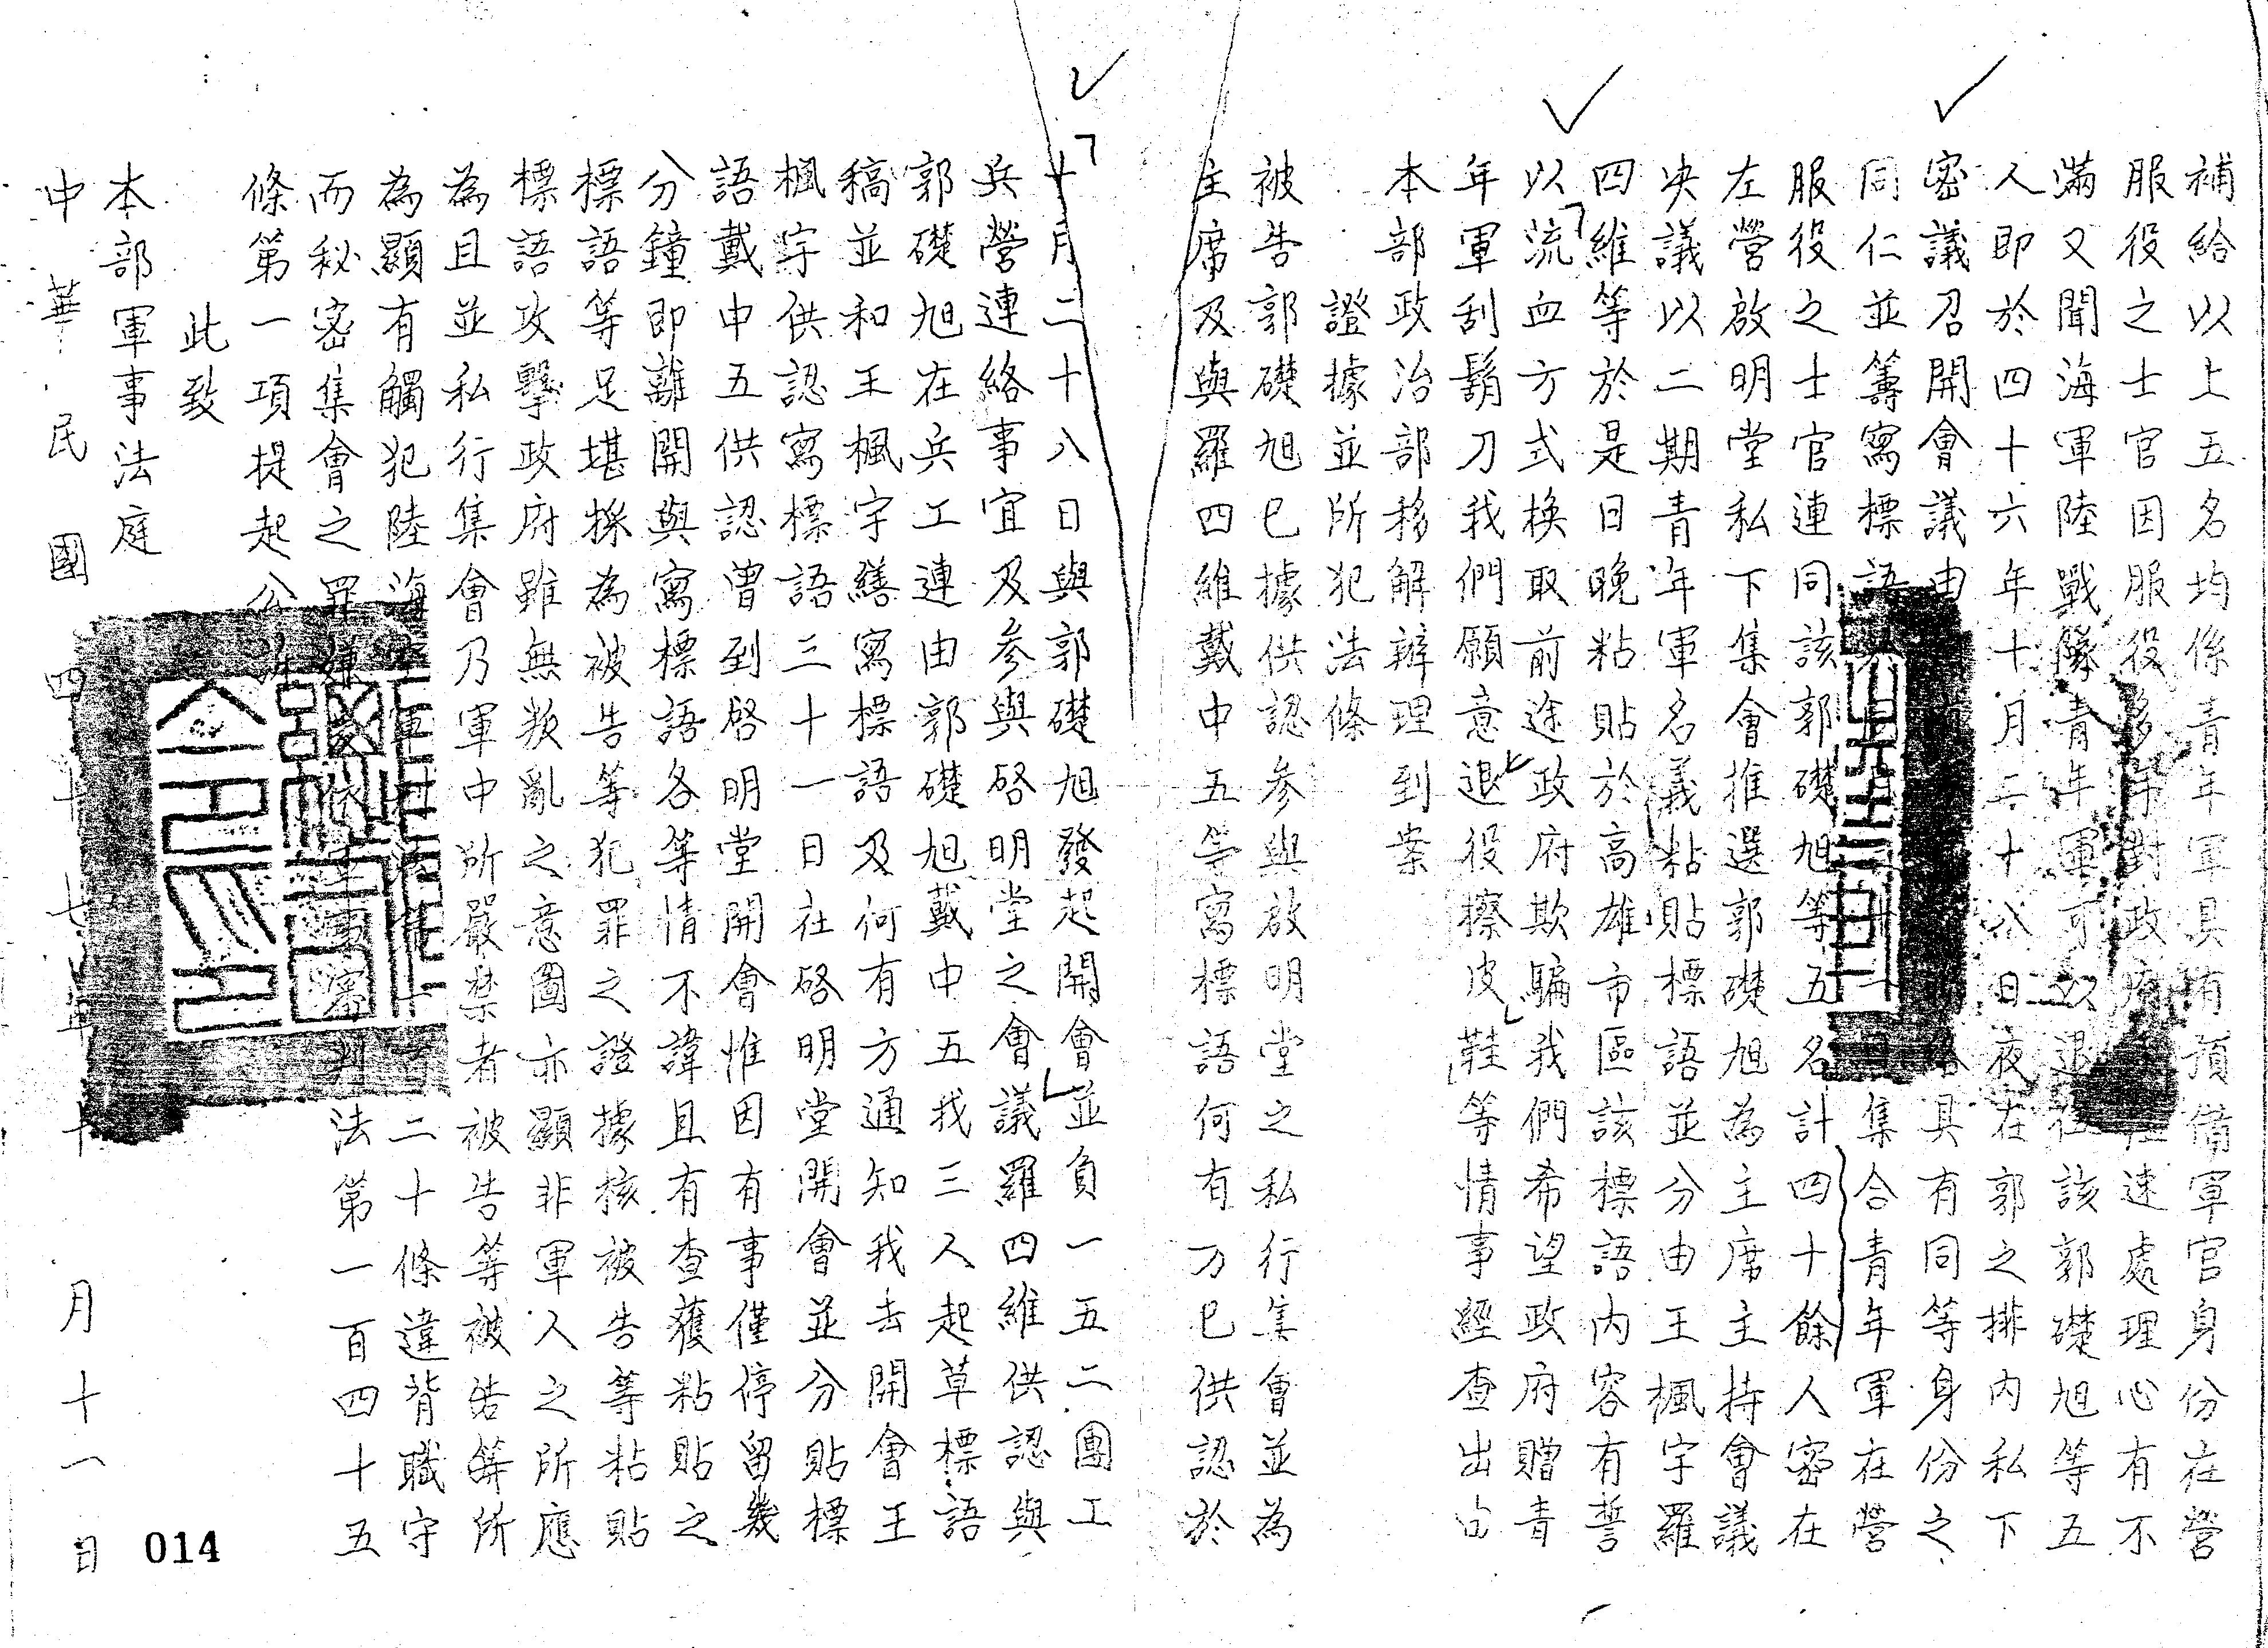 補給以上五名均係青年軍具有預備軍官身份在營
服役之士官因服役多年對政府速處理心有不
滿又聞海軍陸戰隊青年軍可以退役該郭礎旭等五
人即於四十六年十月二十八日夜在郭之排內私下
密議召開會議由具有同等身份之
同仁並籌寫標語集合青年軍在營
服役之士官連同該郭礎旭等五名計四十餘人密在
左營啟明堂私下集會推選郭礎旭為主席主持會議
決議以二期青年軍名義粘貼標語並分由王楓宇羅
四維等於是日晚粘貼於高雄市區該標語內容有誓
以流血方式換取前途政府欺騙我們希望政府贈青
年軍刮鬍刀我們願意退役擦皮鞋等情事經查出由
本部政治部移解辦理到案
證據並所犯法條
被告郭礎旭已據供認參與啟明堂之私行集會並為
主席及與羅四維戴中五等寫標語何有万已供認於
十月二十八日與郭礎旭發起開會並負一五二團工
兵營連絡事宜及參與啓明堂之會議羅四維供認與
郭礎旭在兵工連由郭礎旭戴中五我三人起草標語
稿並和王楓宇繕寫標語及何有方通知我去開會王
楓宇供認寫標語三十一日在啓明堂開會並分貼標
語戴中五供認曾到啓明堂開會惟因有事僅停留幾
分鐘即離開與寫標語各等情不諱且有查獲粘貼之
標語等足堪採為被告等犯罪之證據核被告等粘貼
標語攻擊政府雖無叛亂之意圖亦顯非軍人之所應
為且並私行集會乃軍中所嚴禁者被告等被告等所
為顯有觸犯陸海空軍刑法第一百二十條違背職守
而秘密集會之罪嫌爰依軍事審判法第一百四十五
條第一項提起公訴
此致
本部軍事法庭
中華民國四十七年十月十一日
014